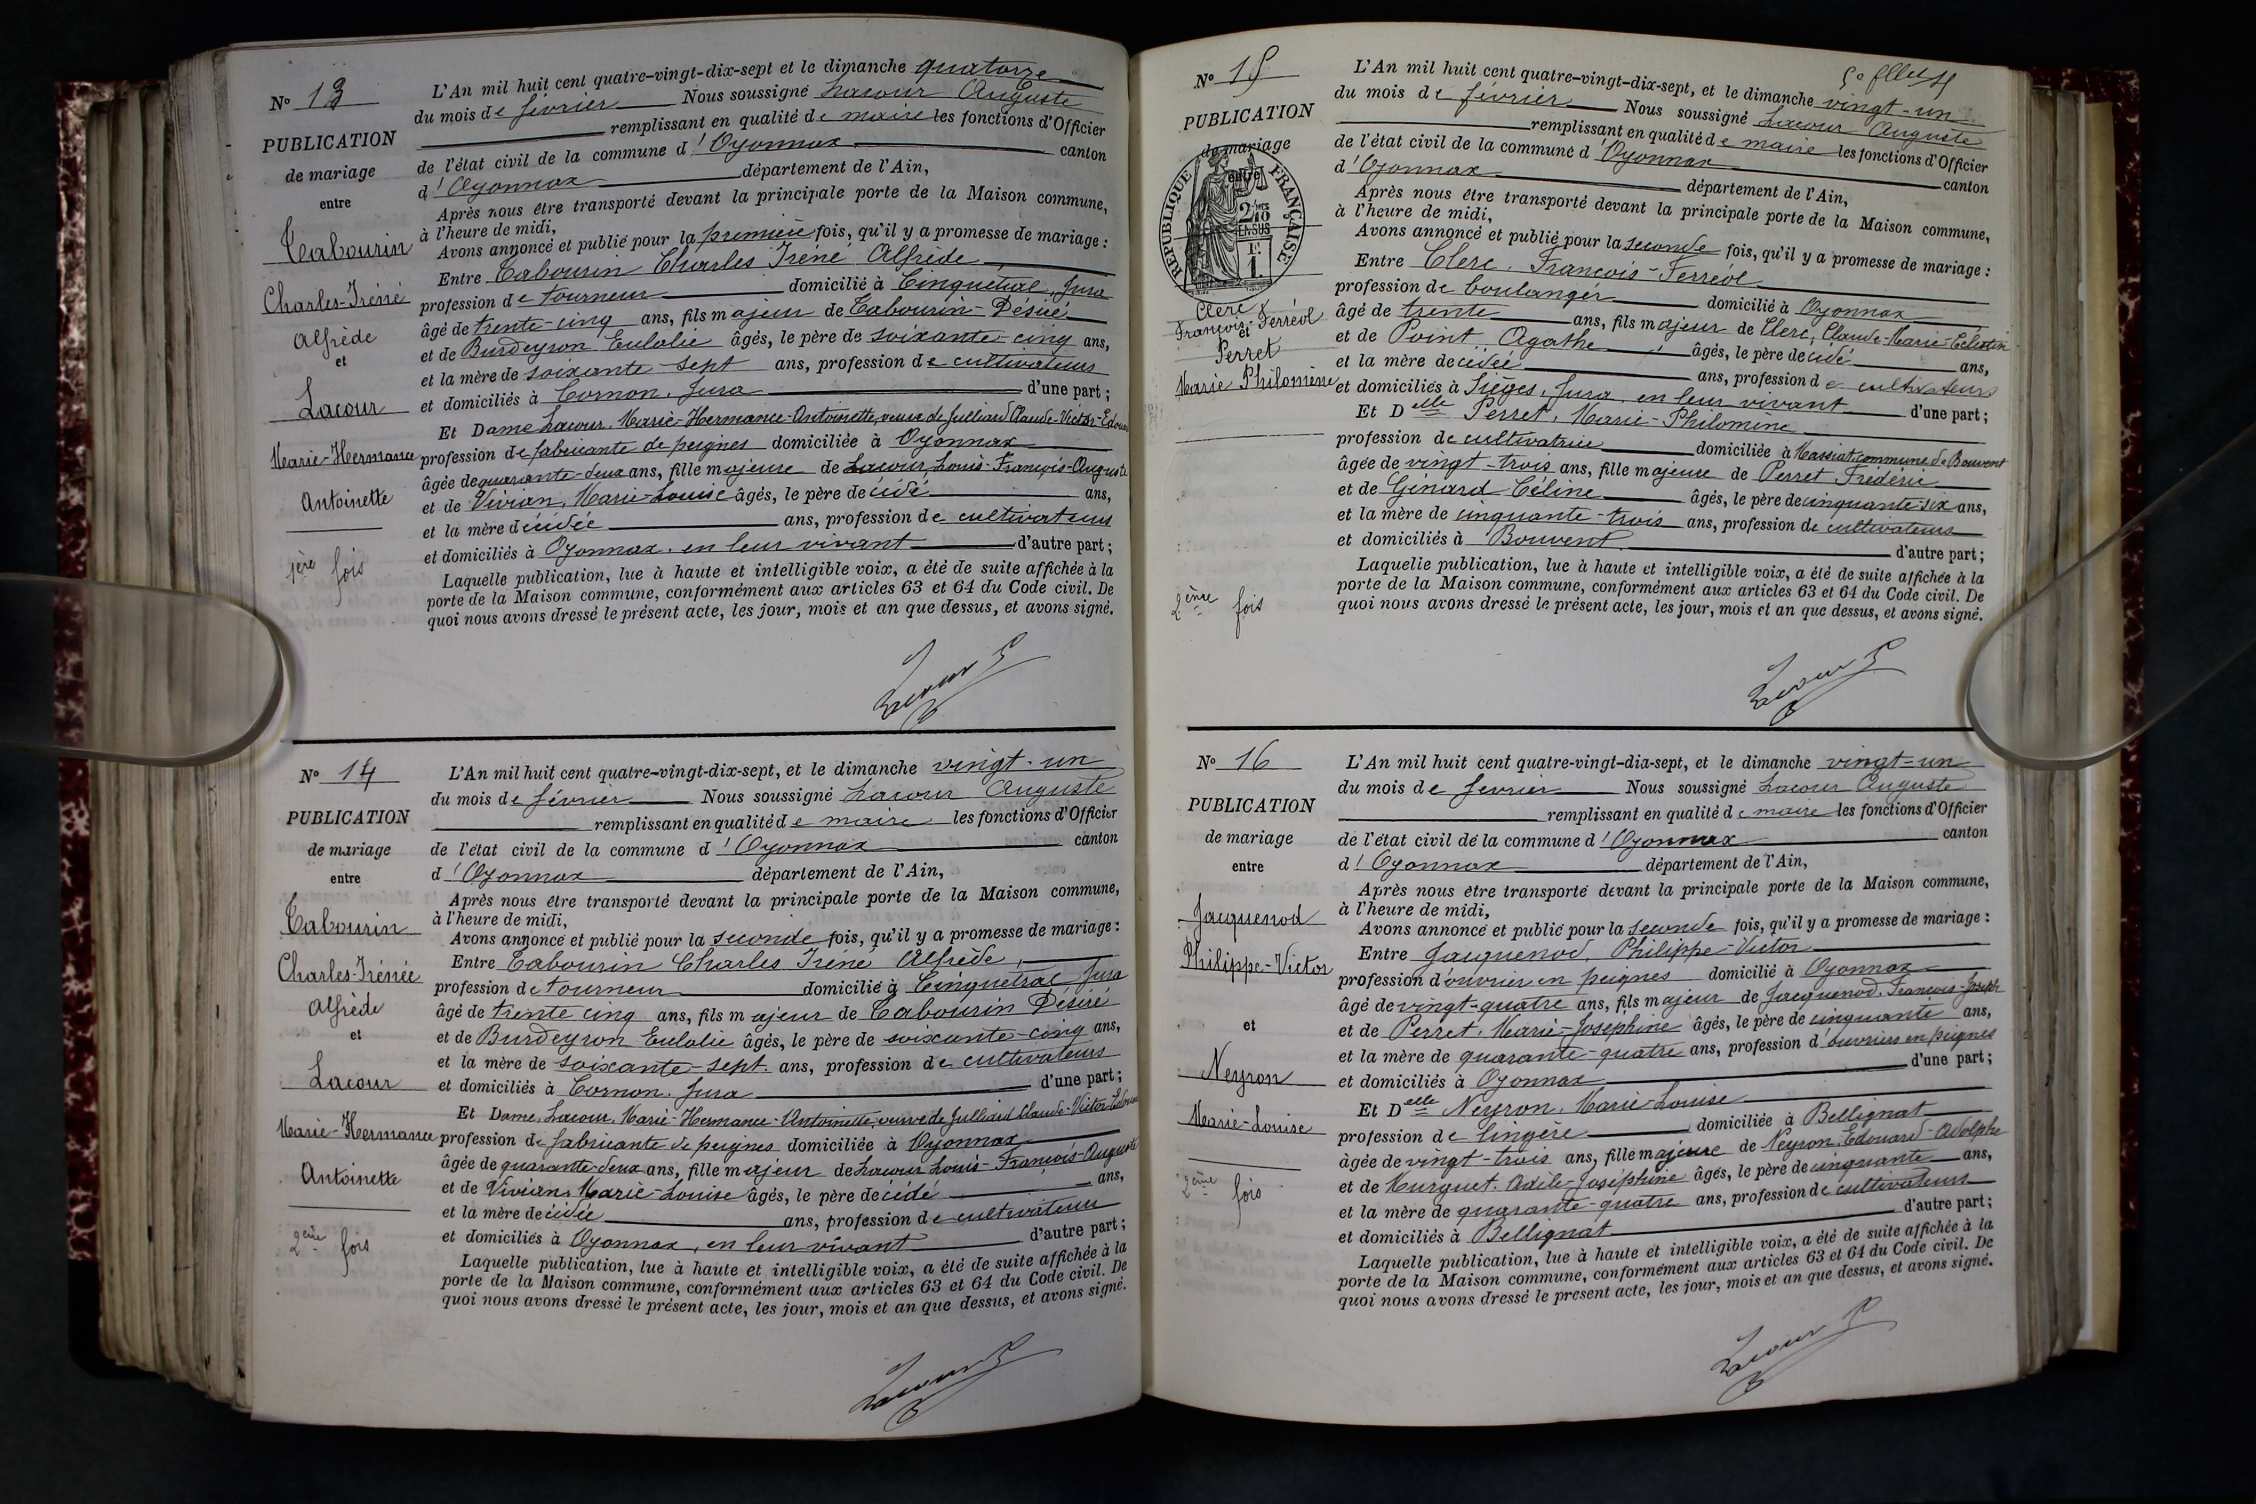 N° 13
PUBLICATION
de mariage
entre
Tabourin
Charles-Iréné
Alfrède
et
Lacour
Marie-Hermance
Antoinette
1ère fois
L'An mil huit cent quatre-vingt-dix-sept et le dimanche quatorze
du mois de février Nous soussigné Lacour Auguste
remplissant en qualité de maire les fonctions d'Officier
de l'état civil de la commune d'Oyonnax canton
d'Oyonnax département de l'Ain,
Après nous être transporté devant la principale porte de la Maison commune,
à l'heure de midi,
Avons annoncé et publié pour la première fois, qu'il y a promesse de mariage :
Entre Tabourin Charles Iréné Alfrède
profession de tourneur domicilié à Cinquétral, Jura
âgé de trente-cinq ans, fils majeur de Tabourin-Désiré
et de Burdeyron Eulalie âgés, le père de soixante-cinq ans,
et la mère de soixante-sept ans, profession de cultivateurs
et domiciliés à Cornon, Jura d'une part ;
Et Dame Lacour, Marie-Hermance-Antoinette, veuve de Julliard Claude-Victor-Edouard
profession de fabricante de peignes domiciliée à Oyonnax
âgée de quarante-deux ans, fille majeure de Lacour, Louis-François-Auguste
et de Vivian, Marie-Louise âgés, le père décédé ans,
et la mère décédée ans, profession de cultivateurs
et domiciliés à Oyonnax, en leur vivant d'autre part ;
Laquelle publication, lue à haute et intelligible voix, a été de suite affichée à la
porte de la Maison commune, conformément aux articles 63 et 64 du Code civil. De
quoi nous avons dressé le présent acte, les jour, mois et an que dessus, et avons signé.
Lacour
N° 14
PUBLICATION
de mariage
entre
Tabourin
Charles-Irénée
Alfrède
et
Lacour
Marie-Hermance
Antoinette
2ème fois
L'An mil huit cent quatre-vingt-dix-sept, et le dimanche vingt-un
du mois de février Nous soussigné Lacour Auguste
remplissant en qualité de maire les fonctions d'Officier
de l'état civil de la commune d'Oyonnax canton
d'Oyonnax département de l'Ain,
Après nous être transporté devant la principale porte de la Maison commune,
à l'heure de midi,
Avons annoncé et publié pour la seconde fois, qu'il y a promesse de mariage :
Entre Tabourin Charles Iréné Alfrède,
profession de tourneur domicilié à Cinquétral Jura
âgé de trente cinq ans, fils majeur de Tabourin Désiré
et de Burdeyron Eulalie âgés, le père de soixante-cinq ans,
et la mère de soixante-sept ans, profession de cultivateurs
et domiciliés à Cornon, Jura d'une part ;
Et Dame, Lacour, Marie-Hermance-Antoinette, veuve de Julliard Claude-Victor-Edouard
profession de fabricante de peignes domiciliée à Oyonnax
âgée de quarante-deux ans, fille majeur de Lacour Louis-François-Auguste
et de Vivian, Marie-Louise âgés, le père décédé ans,
et la mère décédée ans, profession de cultivateur
et domiciliés à Oyonnax, en leur vivant d'autre part ;
Laquelle publication, lue à haute et intelligible voix, a été de suite affichée à la
porte de la Maison commune, conformément aux articles 63 et 64 du Code civil. De
quoi nous avons dressé le présent acte, les jour, mois et an que dessus, et avons signé.
Lacour
N° 15
PUBLICATION
de mariage
entre
RÉPUBLIQUE FRANÇAISE
Clerc
François-Ferréol
et
Perret
Marie Philomène
2ème fois
L'An mil huit cent quatre-vingt-dix-sept, et le dimanche vingt-un
du mois de février Nous soussigné Lacour Auguste
remplissant en qualité de maire les fonctions d'Officier
de l'état civil de la commune d'Oyonnax canton
d'Oyonnax département de l'Ain,
Après nous être transporté devant la principale porte de la Maison commune,
à l'heure de midi,
Avons annoncé et publié pour la seconde fois, qu'il y a promesse de mariage :
Entre Clerc, François-Ferréol
profession de boulanger domicilié à Oyonnax
âgé de trente ans, fils majeur de Clerc, Claude-Marie-Célestin
et de Point Agathe âgés, le père décédé ans,
et la mère décédée ans, profession de cultivateurs
et domiciliés à Sièges, Jura en leur vivant d'une part ;
Et Delle Perret, Marie-Philomine
profession de cultivatrice domiciliée à Massiat commune de Bouvent
âgée de vingt-trois ans, fille majeure de Perret Frédéric
et de Génard Céline âgés, le père de cinquante-six ans,
et la mère de cinquante-trois ans, profession de cultivateurs
et domiciliés à Bouvent d'autre part ;
Laquelle publication, lue à haute et intelligible voix, a été de suite affichée à la
porte de la Maison commune, conformément aux articles 63 et 64 du Code civil. De
quoi nous avons dressé le présent acte, les jour, mois et an que dessus, et avons signé.
Lacour
N° 16
PUBLICATION
de mariage
entre
Jacquenod
Philippe-Victor
et
Neyron
Marie-Louise
2ème fois
L'An mil huit cent quatre-vingt-dix-sept, et le dimanche vingt-un
du mois de fevrier Nous soussigné Lacour Auguste
remplissant en qualité de maire les fonctions d'Officier
de l'état civil de la commune d'Oyonnax canton
d'Oyonnax département de l'Ain,
Après nous être transporté devant la principale porte de la Maison commune,
à l'heure de midi,
Avons annoncé et publié pour la seconde fois, qu'il y a promesse de mariage :
Entre Jacquenod, Philippe-Victor
profession d'ouvrier en peignes domicilié à Oyonnax
âgé de vingt-quatre ans, fils majeur de Jacquenod, François-Joseph
et de Perret, Marie-Joséphine âgés, le père de cinquante ans,
et la mère de quarante-quatre ans, profession d'ouvriers en peignes
et domiciliés à Oyonnax d'une part ;
Et Delle Neyron, Marie-Louise
profession de lingère domiciliée à Bellignat
âgée de vingt-trois ans, fille majeure de Neyron, Edouard-Adolphe
et de Murguet, Adèle-Joséphine âgés, le père de cinquante ans,
et la mère de quarante-quatre ans, profession de cultivateurs
et domiciliés à Bellignat d'autre part ;
Laquelle publication, lue à haute et intelligible voix, a été de suite affichée à la
porte de la Maison commune, conformément aux articles 63 et 64 du Code civil. De
quoi nous avons dressé le présent acte, les jour, mois et an que dessus, et avons signé.
Lacour